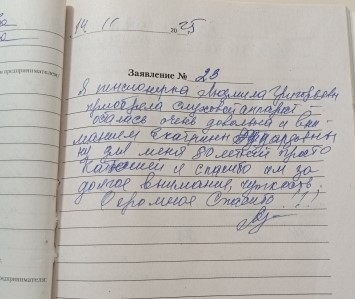 14 11 2025
Заявление № 23
Я пенсионерка Людмила Григорьевна
приобрела слуховой аппарат
осталась очень довольна и вни-
манием Екатерины Эдуардовны
для меня 80 летней просто
и спасибо им за
долгое внимание, чуткость,
Огромное Спасибо !!!
едпринимателя)
едпринимателя